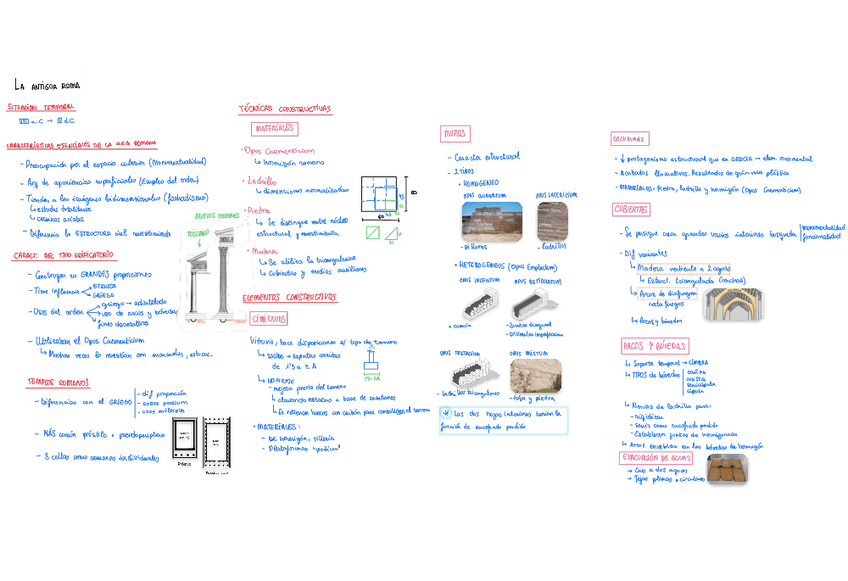 LA ANTIGUA ROMA
SITUACIÓN TEMPORAL
VIII a.C → III d.C
CARACTERÍSTICAS ESENCIALES DE LA ARQ ROMANA
- Preocupación por el espacio interior (Monumentalidad)
- Arq de apariencias superficiales (Empleo del orden)
- Tienden a las imágenes bidimensionales (fachadismo)
↳ estudio
↳ caminos axiales
- Diferencia la ESTRUCTURA del revestimiento
NUEVOS ORDENES
TOSCANO
CARACT. DEL TIPO EDIFICATORIO
- Construyen en GRANDES proporciones
- Tiene influencia
ETRUSCA
GRIEGO
- Usos del orden
griego → adintelado
uso de arcos y bóvedas
fines decorativos
- Utilización el Opus Caementicium
↳ Muchas veces lo revestían con mármoles, estuco..
TEMPLOS ROMANOS
- Diferencias con el GRIEGO
- dif proporción
- sobre podium
- usos múltiples
- MÁS común próstilo + pseudoperíptero
- 3 cellas como
TÉCNICAS CONSTRUCTIVAS
MATERIALES
• Opus Caementicium
↳ hormigón romano
• Ladrillo
↳ dimensiones normalizadas
• Piedra
↳ Se distingue entre núcleo
estructural y revestimiento.
• Madera
↳ Se utiliza la triangulación
↳ Cubiertas y medios auxiliares
ELEMENTOS CONSTRUCTIVOS
CIMIENTOS
Vitruvio, hace disposiciones s/ tipo de terreno
↳ SÓLIDO → zapatas corridas
de 1'5 a 2A
↳ NO FIRME
- mejora previa del terreno
↳ a base de
↳ Se rellenan huecos con carbón para consolidar el terreno
• MATERIALES:
- De hormigón, sillería
- Plataformas "podium"
MUROS
- Caracter estructural
- 2 TIPOS
• HOMOGENEO
OPUS QUADRATUM
OPUS LATERICIUM
- sillares
- ladrillos
• HETEROGENEOS (Opus Emplectum)
OPUS INCERTUM
OPUS RETICULATUM
+ común
- Juntas diagonal
- Disimular imperfeccion
OPUS TESTACIUM
OPUS MIXTUM
- Ladrillos triangulares
- toba y piedra
* Las dos hojas exteriores tenían la
función de encofrado perdido
COLUMNAS
- ↓ protagonismo estructural que en GRECIA → elem ornamental
- Acabados llamativos. Resultados de gran valor plástico
- MATERIALES: Piedra, ladrillo y hormigón (Opus Caementicium)
CUBIERTAS
- Se persigue crear grandes vacíos interiores búsqueda
monumentalidad
funcionalidad
- Dif variantes
↳ Madera vertiente a 2 aguas
↳ Estruct. triangulada (cerchas)
↳ Arcos de diafragma
corta fuegos
↳ Arcos y bóvedas
ARCOS Y BÓVEDAS
↳ Soporte temporal → CIMBRA
↳ TIPOS de bóvedas
cañón
arista
cúpula
↳ Nervios de ladrillo para:
- rigidizar
- Servir como encofrado perdido
- Establecer juntas de hormigonado
↳ Arcos embebidos en las bóvedas de hormigón
EVACUACIÓN DE AGUAS
→ Cub a dos aguas
→ Tejas planas + circulares